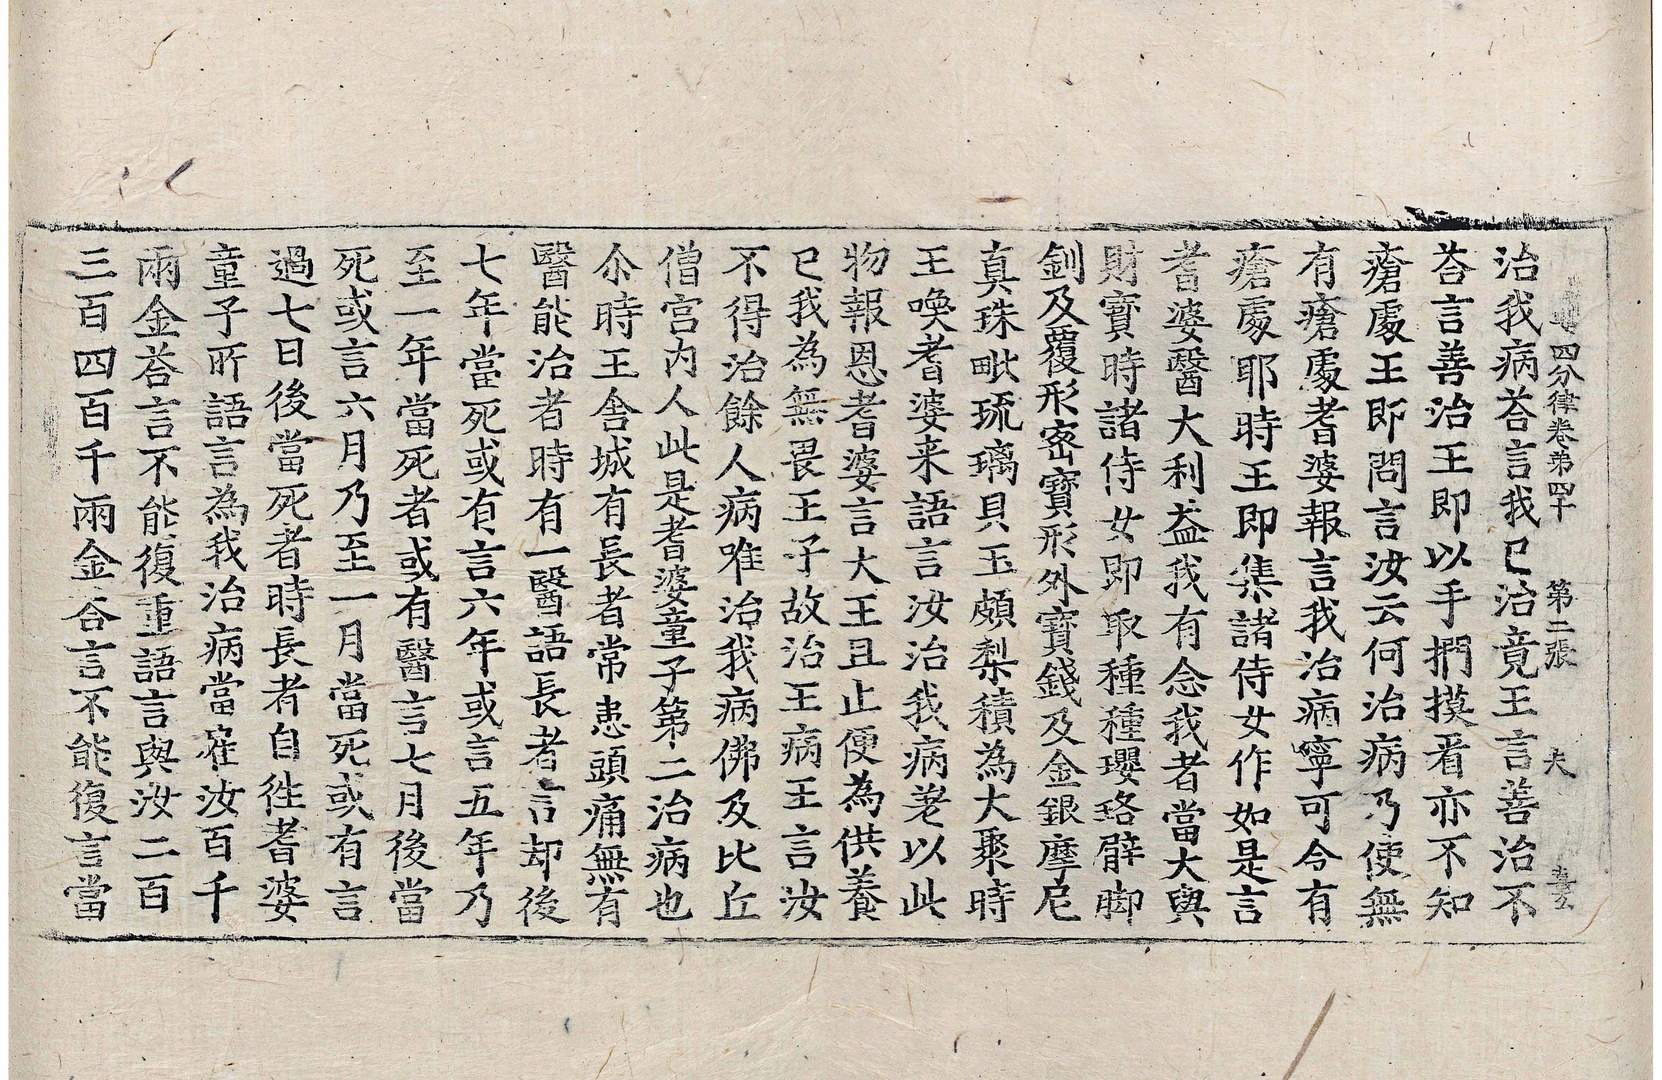 四分律卷苐四十 第二張 夫
治我病荅言我已治竟王言善治不
荅言善治王即以手捫摸看亦不知
瘡處王即問言汝云何治病乃使無
有瘡處耆婆報言我治病寧可令有
瘡處耶時王即集諸侍女作如是言
耆婆醫大利益我有念我者當大與
財寶時諸侍女即取種種瓔珞臂脚
釧及覆形密寶形外寶錢及金銀摩尼
真珠毗琉璃貝玉頗梨積為大聚時
王喚耆婆来語言汝治我病差以此
物報恩耆婆言大王且止便為供養
已我為無畏王子故治王病王言汝
不得治餘人病唯治我病佛及比丘
僧宮內人此是耆婆童子第二治病也
尒時王舍城有長者常患頭痛無有
醫能治者時有一醫語長者言却後
七年當死或有言六年或言五年乃
至一年當死者或有醫言七月後當
死或言六月乃至一月當死或有言
過七日後當死者時長者自徃耆婆
童子所語言為我治病當雇汝百千
兩金荅言不能復重語言與汝二百
三百四百千兩金荅言不能復言當